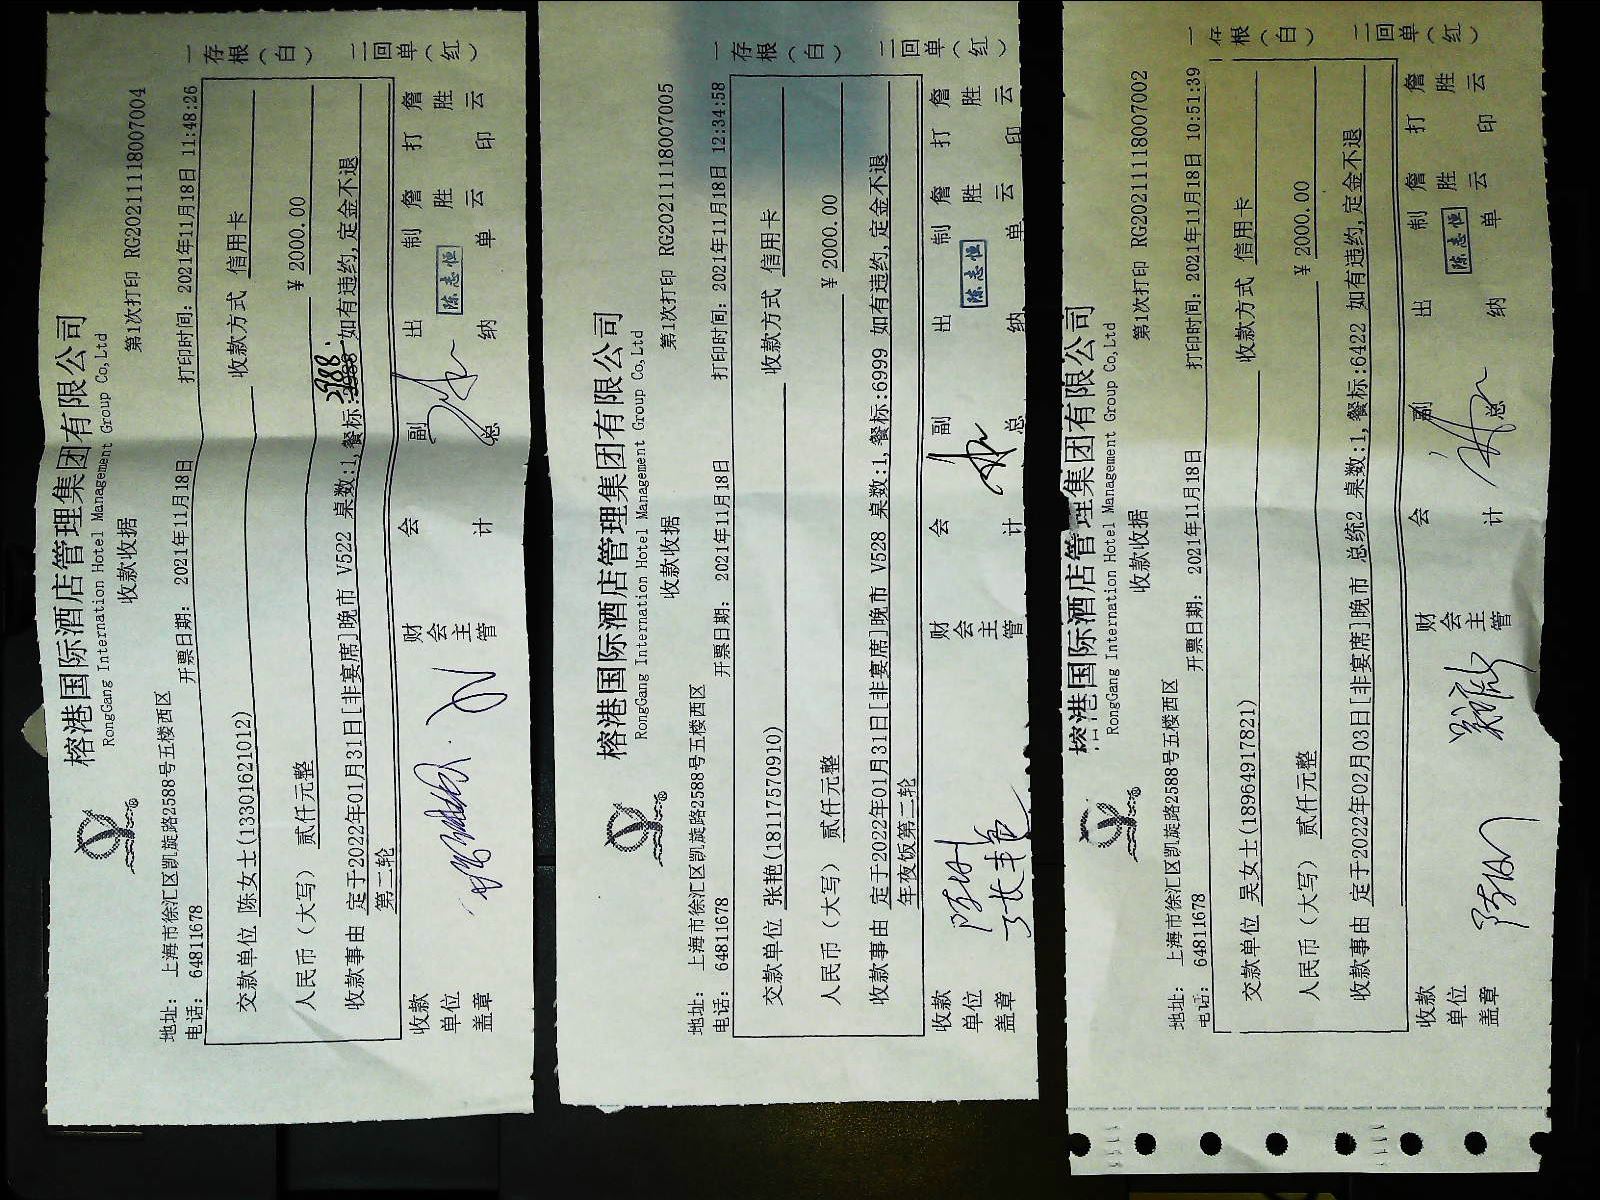 榕港国际酒店管理集团有限公司
RongGang Internation Hotel Management Group Co,Ltd
第1次打印 RG20211118007004
收款收据
地址: 上海市徐汇区凯旋路2588号五楼西区
电话: 64811678
开票日期: 2021年11月18日
打印时间: 2021年11月18日 11:48:26
交款单位 陈女士(13301621012)
收款方式 信用卡
人民币（大写） 贰仟元整
¥ 2000.00
2988.
收款事由 定于2022年01月31日[非宴席]晚市 V522 桌数:1,餐标: 如有违约,定金不退
第二轮
收款单位盖章
财会主管
会计
副总
出纳
陈志恒
制单
詹胜云
打印
詹胜云
一存根（白）
二回单（红）
榕港国际酒店管理集团有限公司
RongGang Internation Hotel Management Group Co,Ltd
第1次打印 RG20211118007005
收款收据
地址: 上海市徐汇区凯旋路2588号五楼西区
电话: 64811678
开票日期: 2021年11月18日
打印时间: 2021年11月18日 12:34:58
交款单位 张艳(18117570910)
收款方式 信用卡
人民币（大写） 贰仟元整
¥ 2000.00
收款事由 定于2022年01月31日[非宴席]晚市 V528 桌数:1,餐标:6999 如有违约,定金不退
年夜饭第二轮
收款单位盖章
张艳
财会主管
会计
副总
出纳
陈志恒
制单
詹胜云
打印
詹胜云
一存根（白）
二回单（红）
榕港国际酒店管理集团有限公司
RongGang Internation Hotel Management Group Co,Ltd
第1次打印 RG20211118007002
收款收据
地址: 上海市徐汇区凯旋路2588号五楼西区
电话: 64811678
开票日期: 2021年11月18日
打印时间: 2021年11月18日 10:51:39
交款单位 吴女士(18964917821)
收款方式 信用卡
人民币（大写） 贰仟元整
¥ 2000.00
收款事由 定于2022年02月03日[非宴席]晚市 总统2 桌数:1,餐标:6422 如有违约,定金不退
收款单位盖章
财会主管
会计
副总
出纳
陈志恒
制单
詹胜云
打印
詹胜云
一存根（白）
二回单（红）